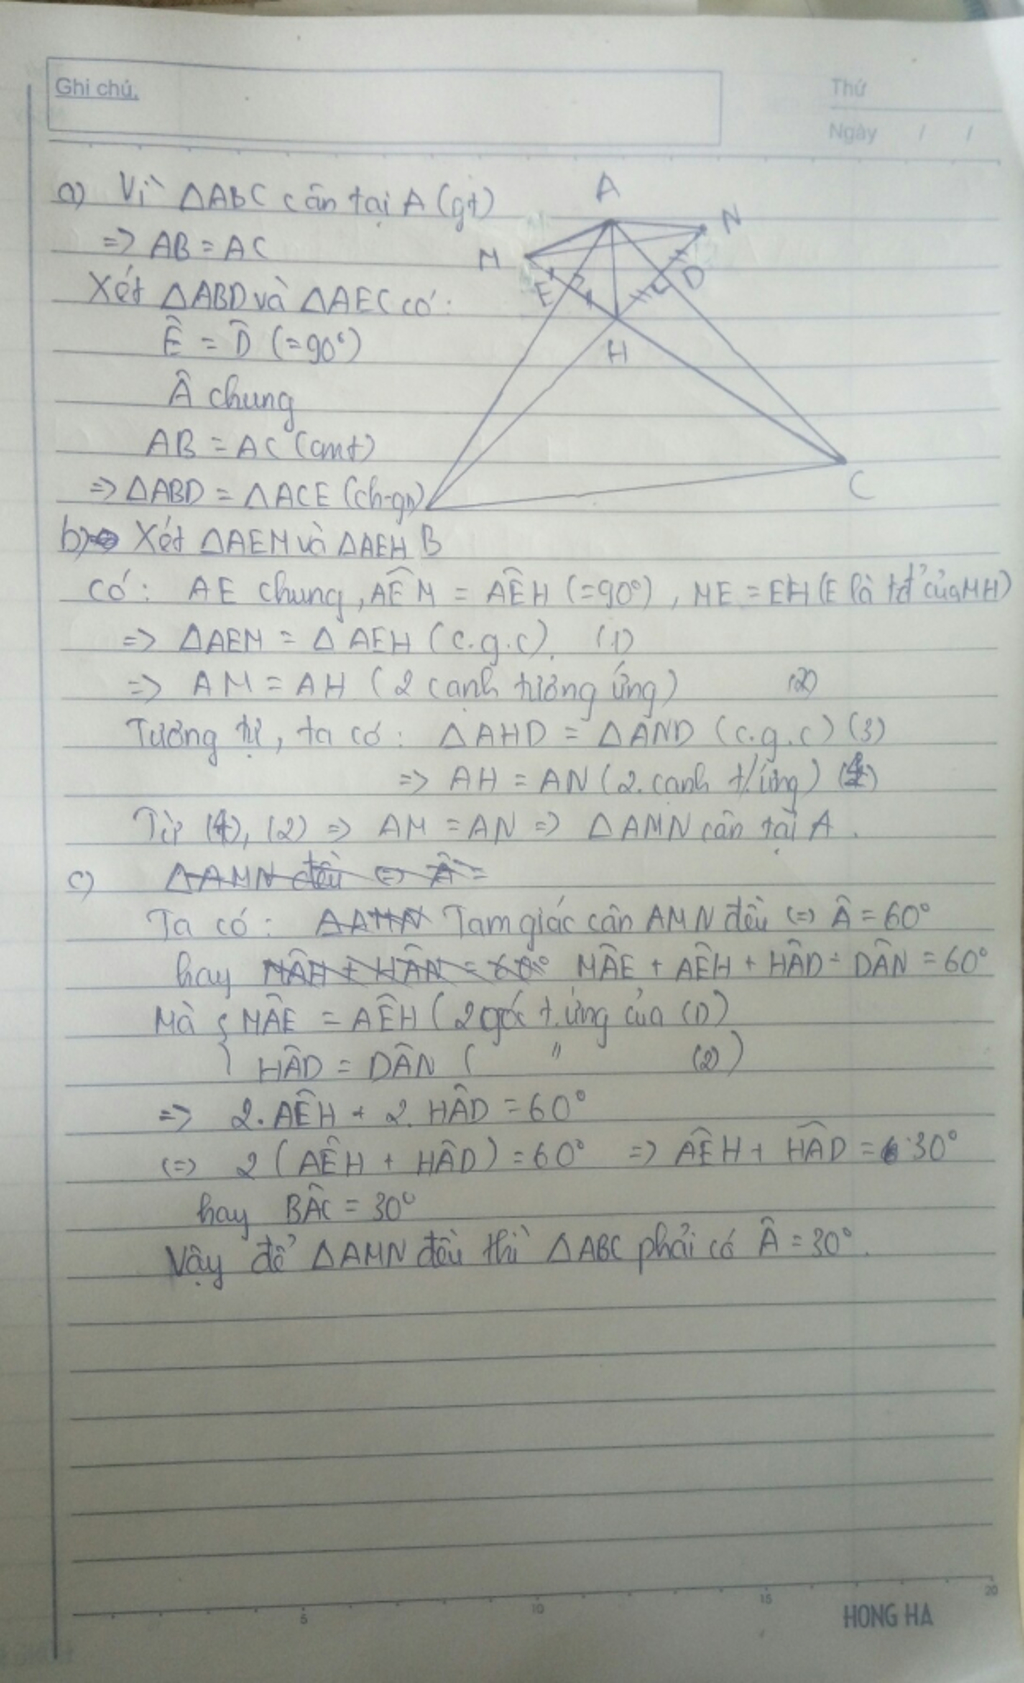 Ghi chú.
Thứ
Ngày / /
a) Vì ΔABC cân tại A (gt)
=> AB = AC
Xét ΔABD và ΔAEC có:
Ê = D̂ (=90°)
Â chung
AB = AC (cmt)
=> ΔABD = ΔACE (ch-gn)
A
M
N
E
D
H
C
b) Xét ΔAEM và ΔAEH B
có: AE chung, AÊM = AÊH (=90°), ME = EH (E là tđ của MH)
=> ΔAEM = ΔAEH (c.g.c). (1)
=> AM = AH (2 cạnh tương ứng) (2)
Tương tự, ta có: ΔAHD = ΔAND (c.g.c) (3)
=> AH = AN (2. cạnh t/ứng) (4)
Từ (4), (2) => AM = AN => ΔAMN cân tại A.
c) ΔAMN đều <=> Â =
Ta có: ΔAMN Tam giác cân AMN đều <=> Â = 60°
hay MÂH + HÂN = 60° MÂE + AÊH + HÂD + DÂN = 60°
Mà { MÂE = AÊH (2 góc t.ứng của (1))
HÂD = DÂN ( " (2))
=> 2. AÊH + 2. HÂD = 60°
<=> 2 (AÊH + HÂD) = 60° => AÊH + HÂD = 30°
hay BÂC = 30°
Vậy để ΔAMN đều thì ΔABC phải có Â = 30°.
5 10 15 20
HONG HA